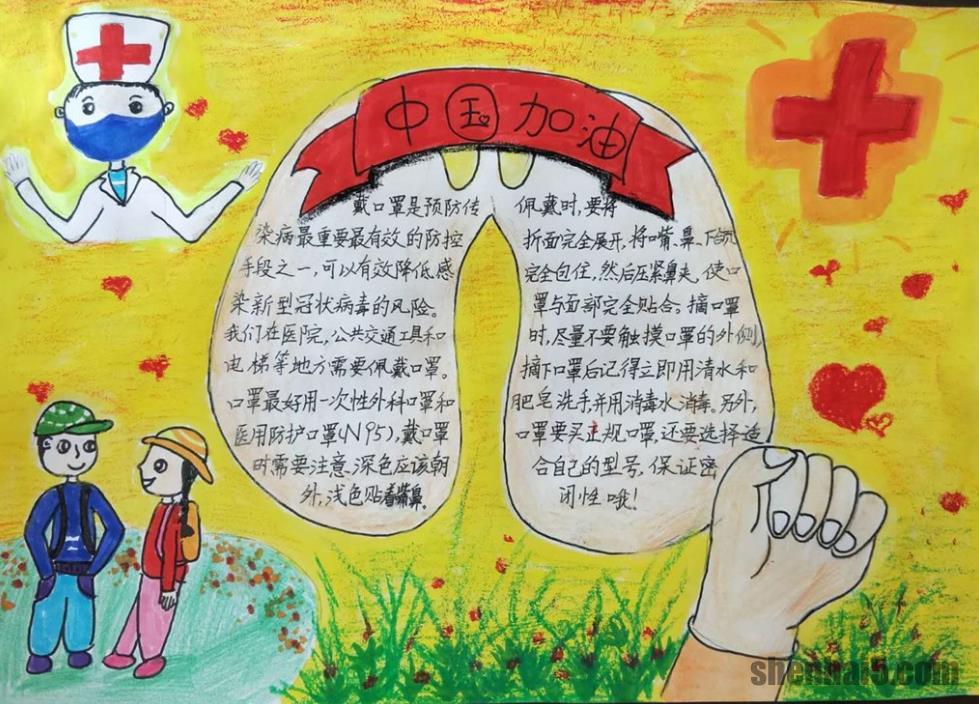 中国加油
戴口罩是预防传
染病最重要最有效的防控
手段之一，可以有效降低感
染新型冠状病毒的风险。
我们在医院，公共交通工具和
电梯等地方需要佩戴口罩。
口罩最好用一次性外科口罩和
医用防护口罩(N95)，戴口罩
时需要注意，深色应该朝
外，浅色贴着嘴鼻。
佩戴时，要将
折面完全展开，将嘴、鼻、下
完全包住，然后压紧鼻夹，使口
罩与面部完全贴合。摘口罩
时，尽量不要触摸口罩的外侧，
摘下口罩后记得立即用清水和
肥皂洗手，并用消毒水消毒。另外，
口罩要买正规口罩，还要选择适
合自己的型号，保证密
闭性哦！
shenhai5.com